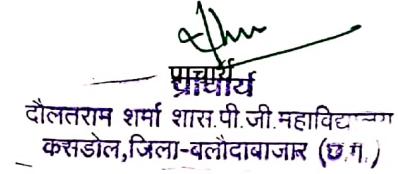 प्राचार्य
प्राचार्य
दौलतराम शर्मा शास.पी.जी.महाविद्यालय
कसडोल,जिला-बलौदाबाजार (छ.ग.)